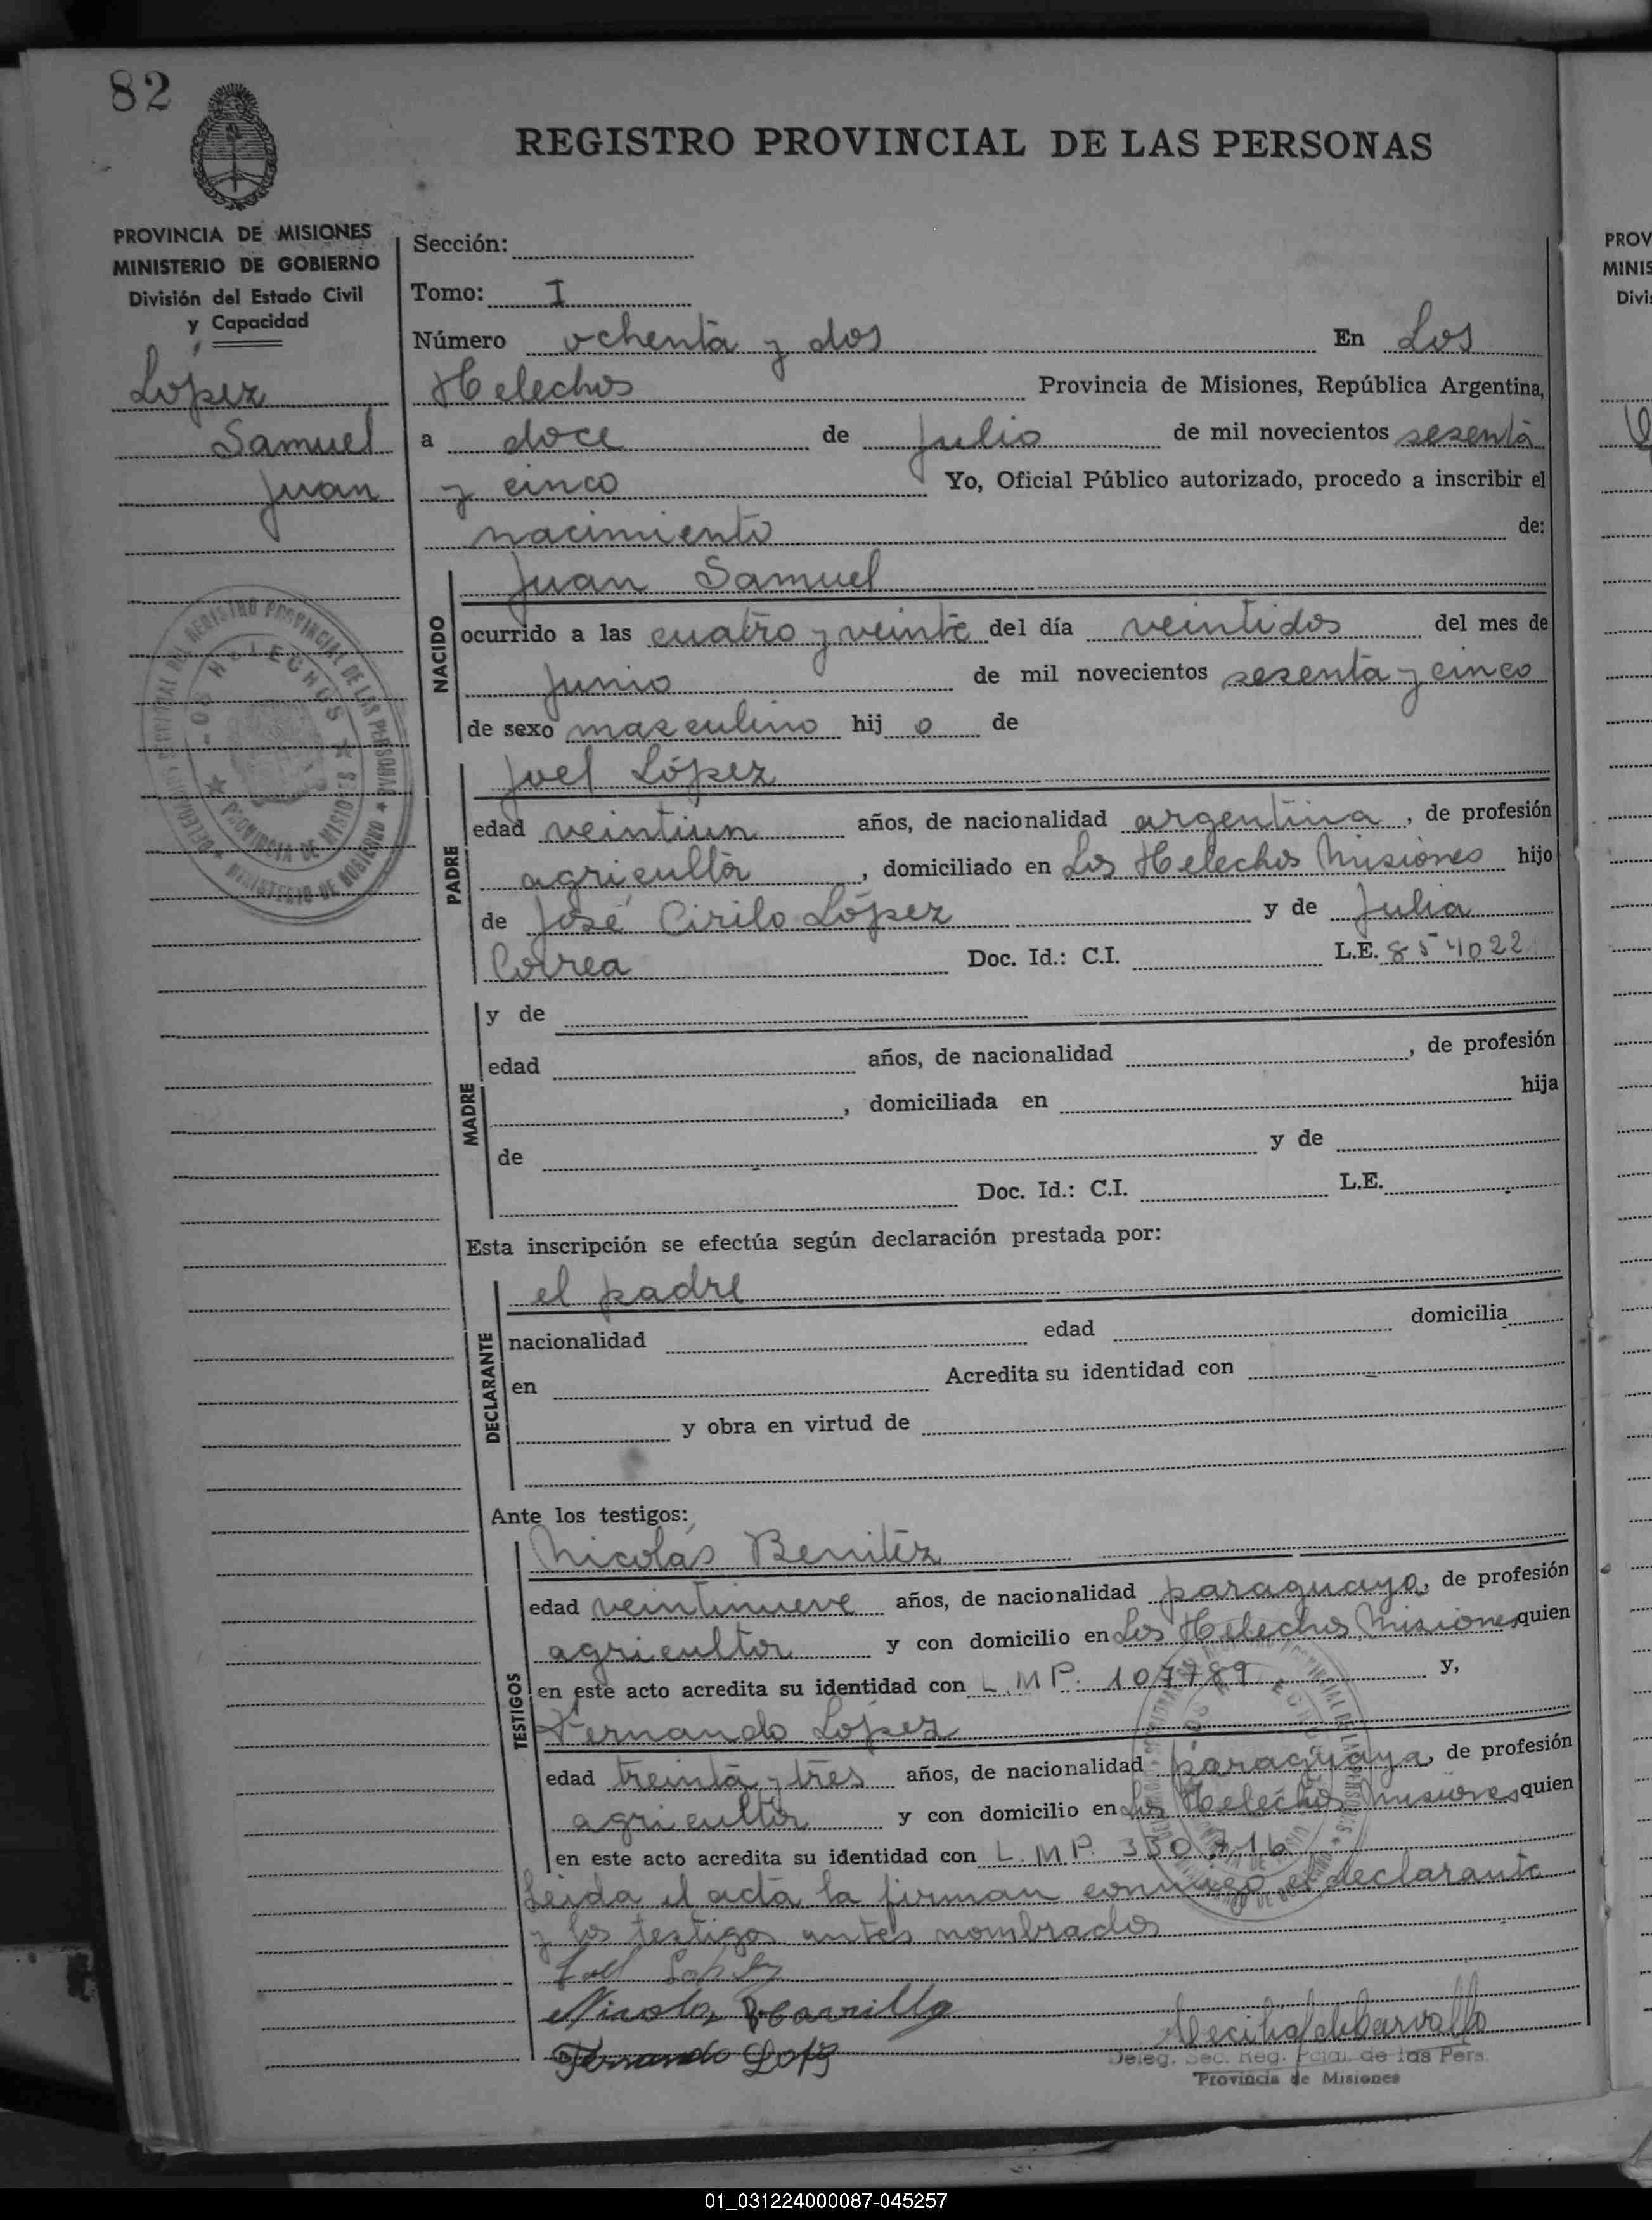 82
REGISTRO PROVINCIAL DE LAS PERSONAS
PROVINCIA DE MISIONES
MINISTERIO DE GOBIERNO
División del Estado Civil
y Capacidad
López
Samuel
Juan
Sección:
Tomo: I
Número ochenta y dos En Los
Helechos Provincia de Misiones, República Argentina,
a doce de Julio de mil novecientos sesenta
y cinco Yo, Oficial Público autorizado, procedo a inscribir el
nacimiento de:
NACIDO
Juan Samuel
ocurrido a las cuatro y veinte del día veintidos del mes de
Junio de mil novecientos sesenta y cinco
de sexo masculino hij o de
PADRE
Joel López
edad veintiun años, de nacionalidad argentina, de profesión
agricultor, domiciliado en Los Helechos Misiones hijo
de José Cirilo López y de Julia
Correa Doc. Id.: C.I. L.E. 854022
MADRE
y de
edad años, de nacionalidad , de profesión
, domiciliada en hija
de y de
Doc. Id.: C.I. L.E.
Esta inscripción se efectúa según declaración prestada por:
DECLARANTE
el padre
nacionalidad edad domicilia
en Acredita su identidad con
y obra en virtud de
Ante los testigos:
TESTIGOS
Nicolás Benitez
edad veintinueve años, de nacionalidad paraguaya, de profesión
agricultor y con domicilio en Los Helechos Misiones quien
en este acto acredita su identidad con L.M.P. 107789 y,
Fernando López
edad treinta y tres años, de nacionalidad paraguaya, de profesión
agricultor y con domicilio en Los Helechos Misiones quien
en este acto acredita su identidad con L.M.P. 350.716
Leida el acta la firman conmigo el declarante
y los testigos antes nombrados
Joel Lopez
Nicolas
Fernando Lopez
Deleg. Sec. Reg. Pcial. de las Pers.
Provincia de Misiones
PROV
MINIS
Divi
01_031224000087-045257